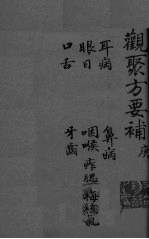 觀聚方要補 庚
耳病
眼目
口舌
鼻病
咽喉 疿腮 梅核氣
牙齒